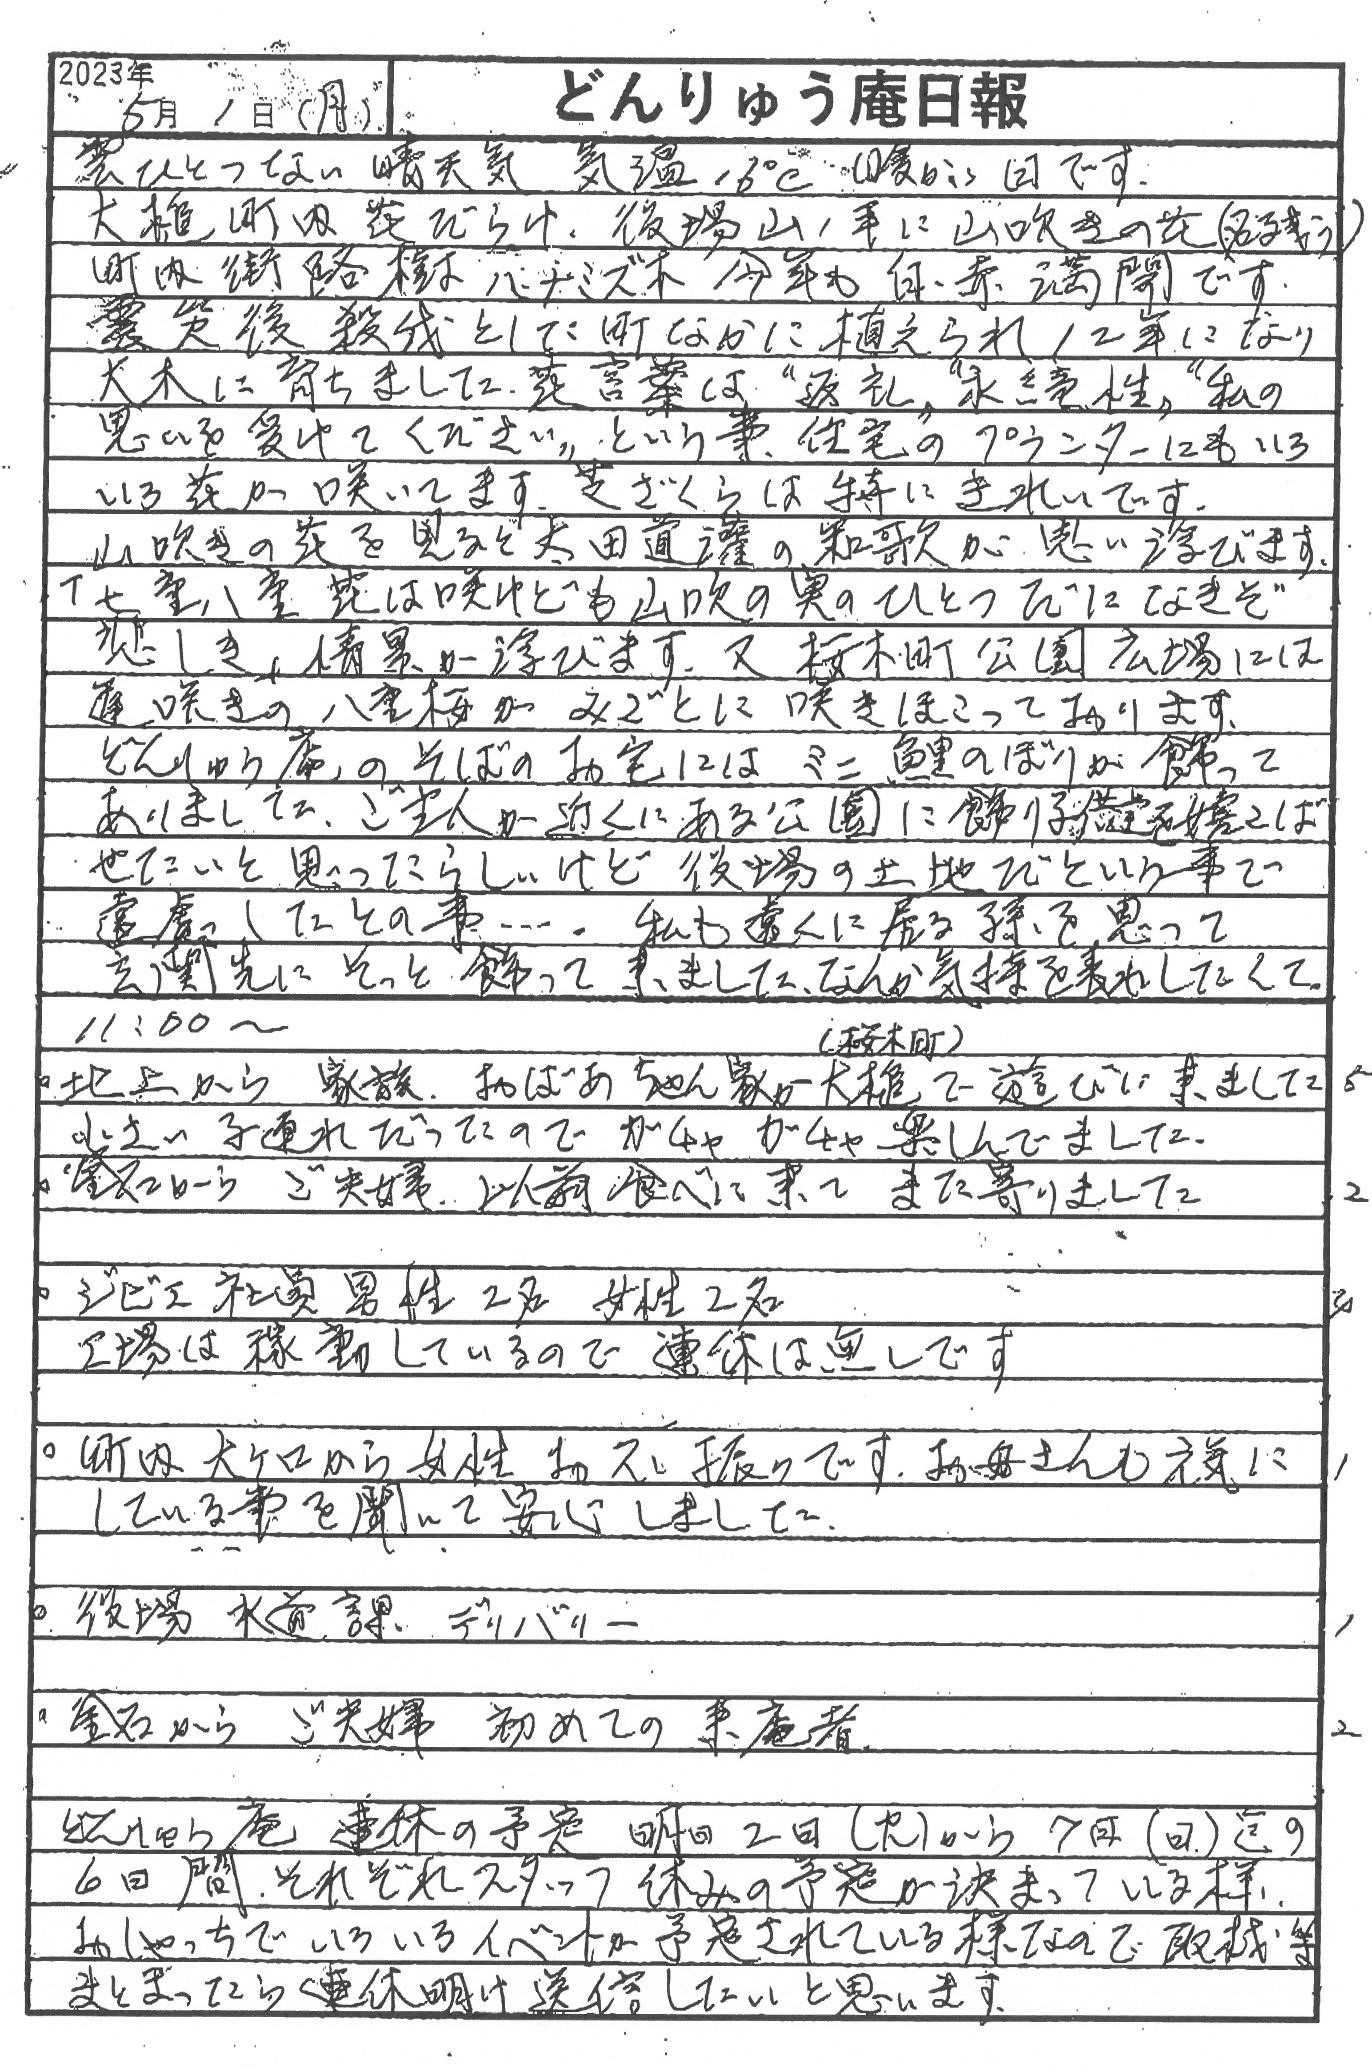 2023年
5月 1日(月)
どんりゅう庵日報
雲ひとつない晴天気 気温18℃ 暖かい日です.
大槌町内 花だらけ. 役場山ノ手に山吹きの花
町内街路樹は ハナミズ木 今年も 白、赤 満開です.
震災後 殺伐とした町なかに植えられ 12年になり
大木に育ちました. 花言葉は "返礼" "永続性" "私の
思いを受けてください"という事. 住宅のプランターにもいろ
いろ花が咲いてます. 芝ざくらは特にきれいです.
山吹きの花を見ると太田道灌の和歌が思い浮びます.
「七重八重 花は咲けども山吹の実のひとつだになきぞ
悲しき」情景が浮びます. 又 桜木町公園広場には
遅咲きの八重桜がみごとに咲きほこっております.
どんりゅう庵のそばのお宅にはミニ鯉のぼりが飾って
ありました. ご主人が近くにある公園に飾り子供達を喜こば
せたいと思ったらしいけど 役場の土地だという事で
遠慮したとの事・・・. 私も遠くに居る孫を思って
玄関先にそっと飾って来ました. なんか気持を表わしたくて.
11:00〜
(桜木町)
・北上から 家族. おばあちゃん家が大槌で遊びに来ました 5
小さい子連れだったのでガチャガチャ楽しんでました.
・釜石から ご夫婦. 以前食べに来て また寄りました 2
・ジビエ社員 男性2名 女性2名
工場は稼動しているので 連休は無しです
・町内大ケ口から女性 お久し振りです. お母さんも元気に 1
している事を聞いて安心しました.
・役場 水道課. デリバリー 1
・釜石から ご夫婦 初めての来庵者. 2
どんりゅう庵 連休の予定 明日2日(火)から7日(日)迄の
6日間. それぞれスタッフ休みの予定が決まっている様.
おしゃっちでいろいろイベントが予定されている様なので 取材等
まとまったら連休明け送信したいと思います.